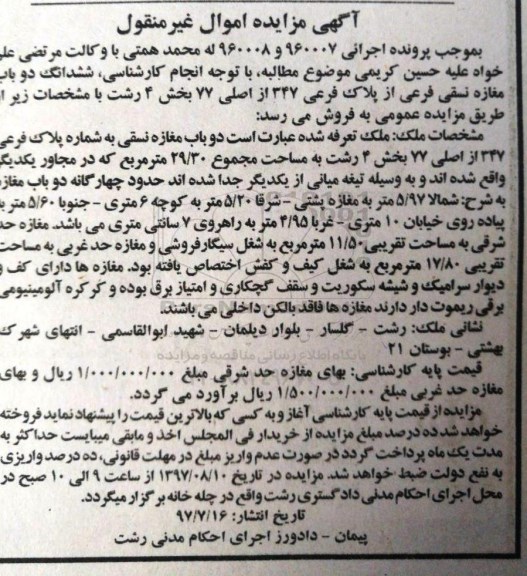 آگهی مزایده اموال غیرمنقول
بموجب پرونده اجرائی ۹۶۰۰۰۷ و ۹۶۰۰۰۸ له محمد همتی با وکالت مرتضی علی
خواه علیه حسین کریمی موضوع مطالبه، با توجه انجام کارشناسی، ششدانگ دو باب
مغازه نسقی فرعی از پلاک فرعی ۳۴۷ از اصلی ۷۷ بخش ۴ رشت با مشخصات زیر از
طریق مزایده عمومی به فروش می رسد:
مشخصات ملک: ملک تعرفه شده عبارت است دو باب مغازه نسقی به شماره پلاک فرعی
۳۴۷ از اصلی ۷۷ بخش ۴ رشت به مساحت مجموع ۲۹/۳۰ مترمربع که در مجاور یکدیگر
واقع شده اند و به وسیله تیغه میانی از یکدیگر جدا شده اند حدود چهارگانه دو باب مغازه
به شرح: شمالا ۵/۹۷ متر به مغازه پشتی - شرقا ۵/۲۰ متر به کوچه ۶ متری - جنوبا ۵/۶۰ متر به
پیاده روی خیابان ۱۰ متری - غربا ۴/۹۵ متر به راهروی ۷ سانتی متری می باشد. مغازه حد
شرقی به مساحت تقریبی ۱۱/۵۰ مترمربع به شغل سیگارفروشی و مغازه حد غربی به مساحت
تقریبی ۱۷/۸۰ مترمربع به شغل کیف و کفش اختصاص یافته بود. مغازه ها دارای کف و
دیوار سرامیک و شیشه سکوریت و سقف گچکاری و امتیاز برق بوده و کرکره آلومینیومی
برقی ریموت دار دارند مغازه ها فاقد بالکن داخلی می باشند.
نشانی ملک: رشت - گلسار - بلوار دیلمان - شهید ابوالقاسمی - انتهای شهرک
بهشتی - بوستان ۲۱
قیمت پایه کارشناسی: بهای مغازه حد شرقی مبلغ ۱/۰۰۰/۰۰۰/۰۰۰ ریال و بهای
مغازه حد غربی مبلغ ۱/۵۰۰/۰۰۰/۰۰۰ ریال برآورد می گردد.
مزایده از قیمت پایه کارشناسی آغاز و به کسی که بالاترین قیمت را پیشنهاد نماید فروخته
خواهد شد ده درصد مبلغ مزایده از خریدار فی المجلس اخذ و مابقی میبایست حداکثر به
مدت یک ماه پرداخت گردد در صورت عدم واریز مبلغ در مهلت قانونی، ده درصد واریزی
به نفع دولت ضبط خواهد شد. مزایده در تاریخ ۱۳۹۷/۰۸/۱۰ از ساعت ۹ الی ۱۰ صبح در
محل اجرای احکام مدنی دادگستری رشت واقع در چله خانه برگزار میگردد.
تاریخ انتشار: ۹۷/۷/۱۶
پیمان - دادورز اجرای احکام مدنی رشت
پایگاه اطلاع رسانی مناقصه و مزایده